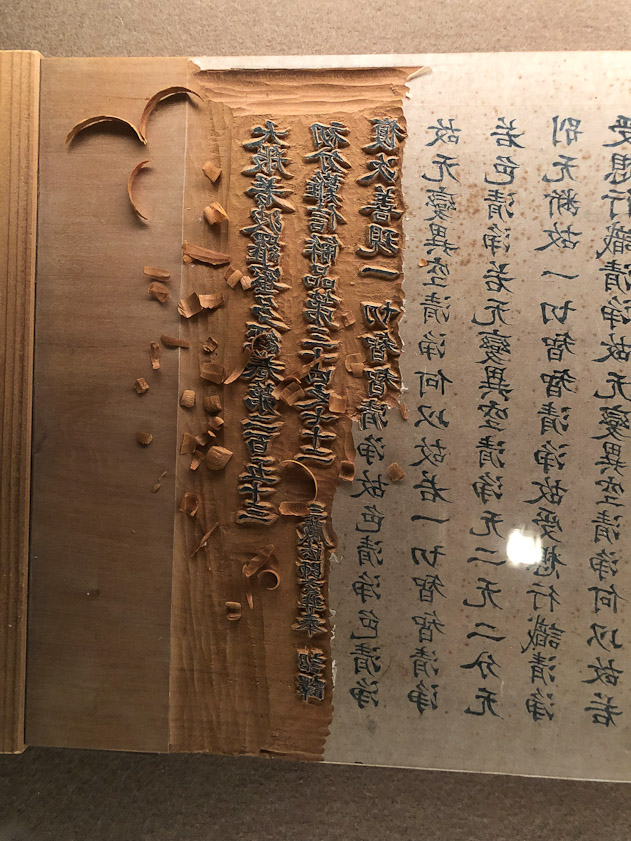 大般若波羅蜜多經卷第二百五十三
初分難信解品第三十四之七十二 三藏法師玄奘奉 詔譯
復次善現一切智智清淨故色清淨色清淨
故无變異空清淨何以故若一切智智清淨
若色清淨若无變異空清淨无二无二分无
別无斷故一切智智清淨故受想行識清淨
受想行識清淨故无變異空清淨何以故若